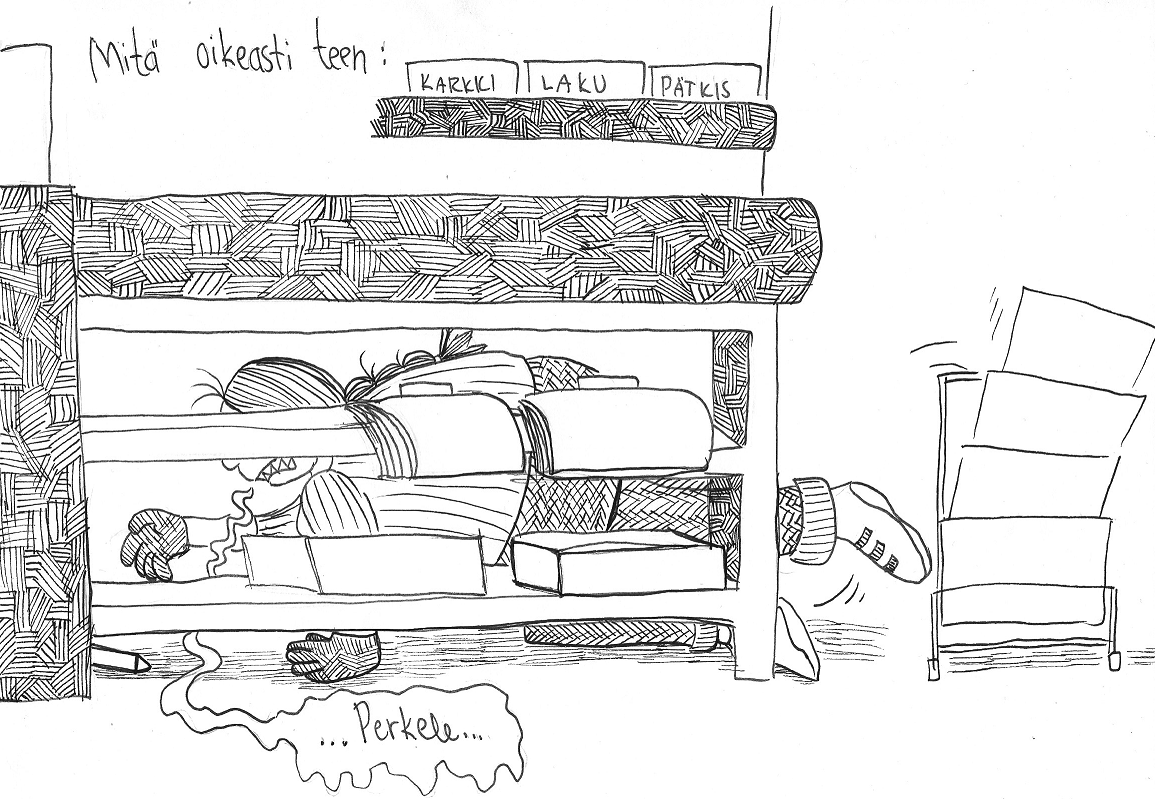 Mitä oikeasti teen:
KARKKI LAKU PÄTKIS
...Perkele...